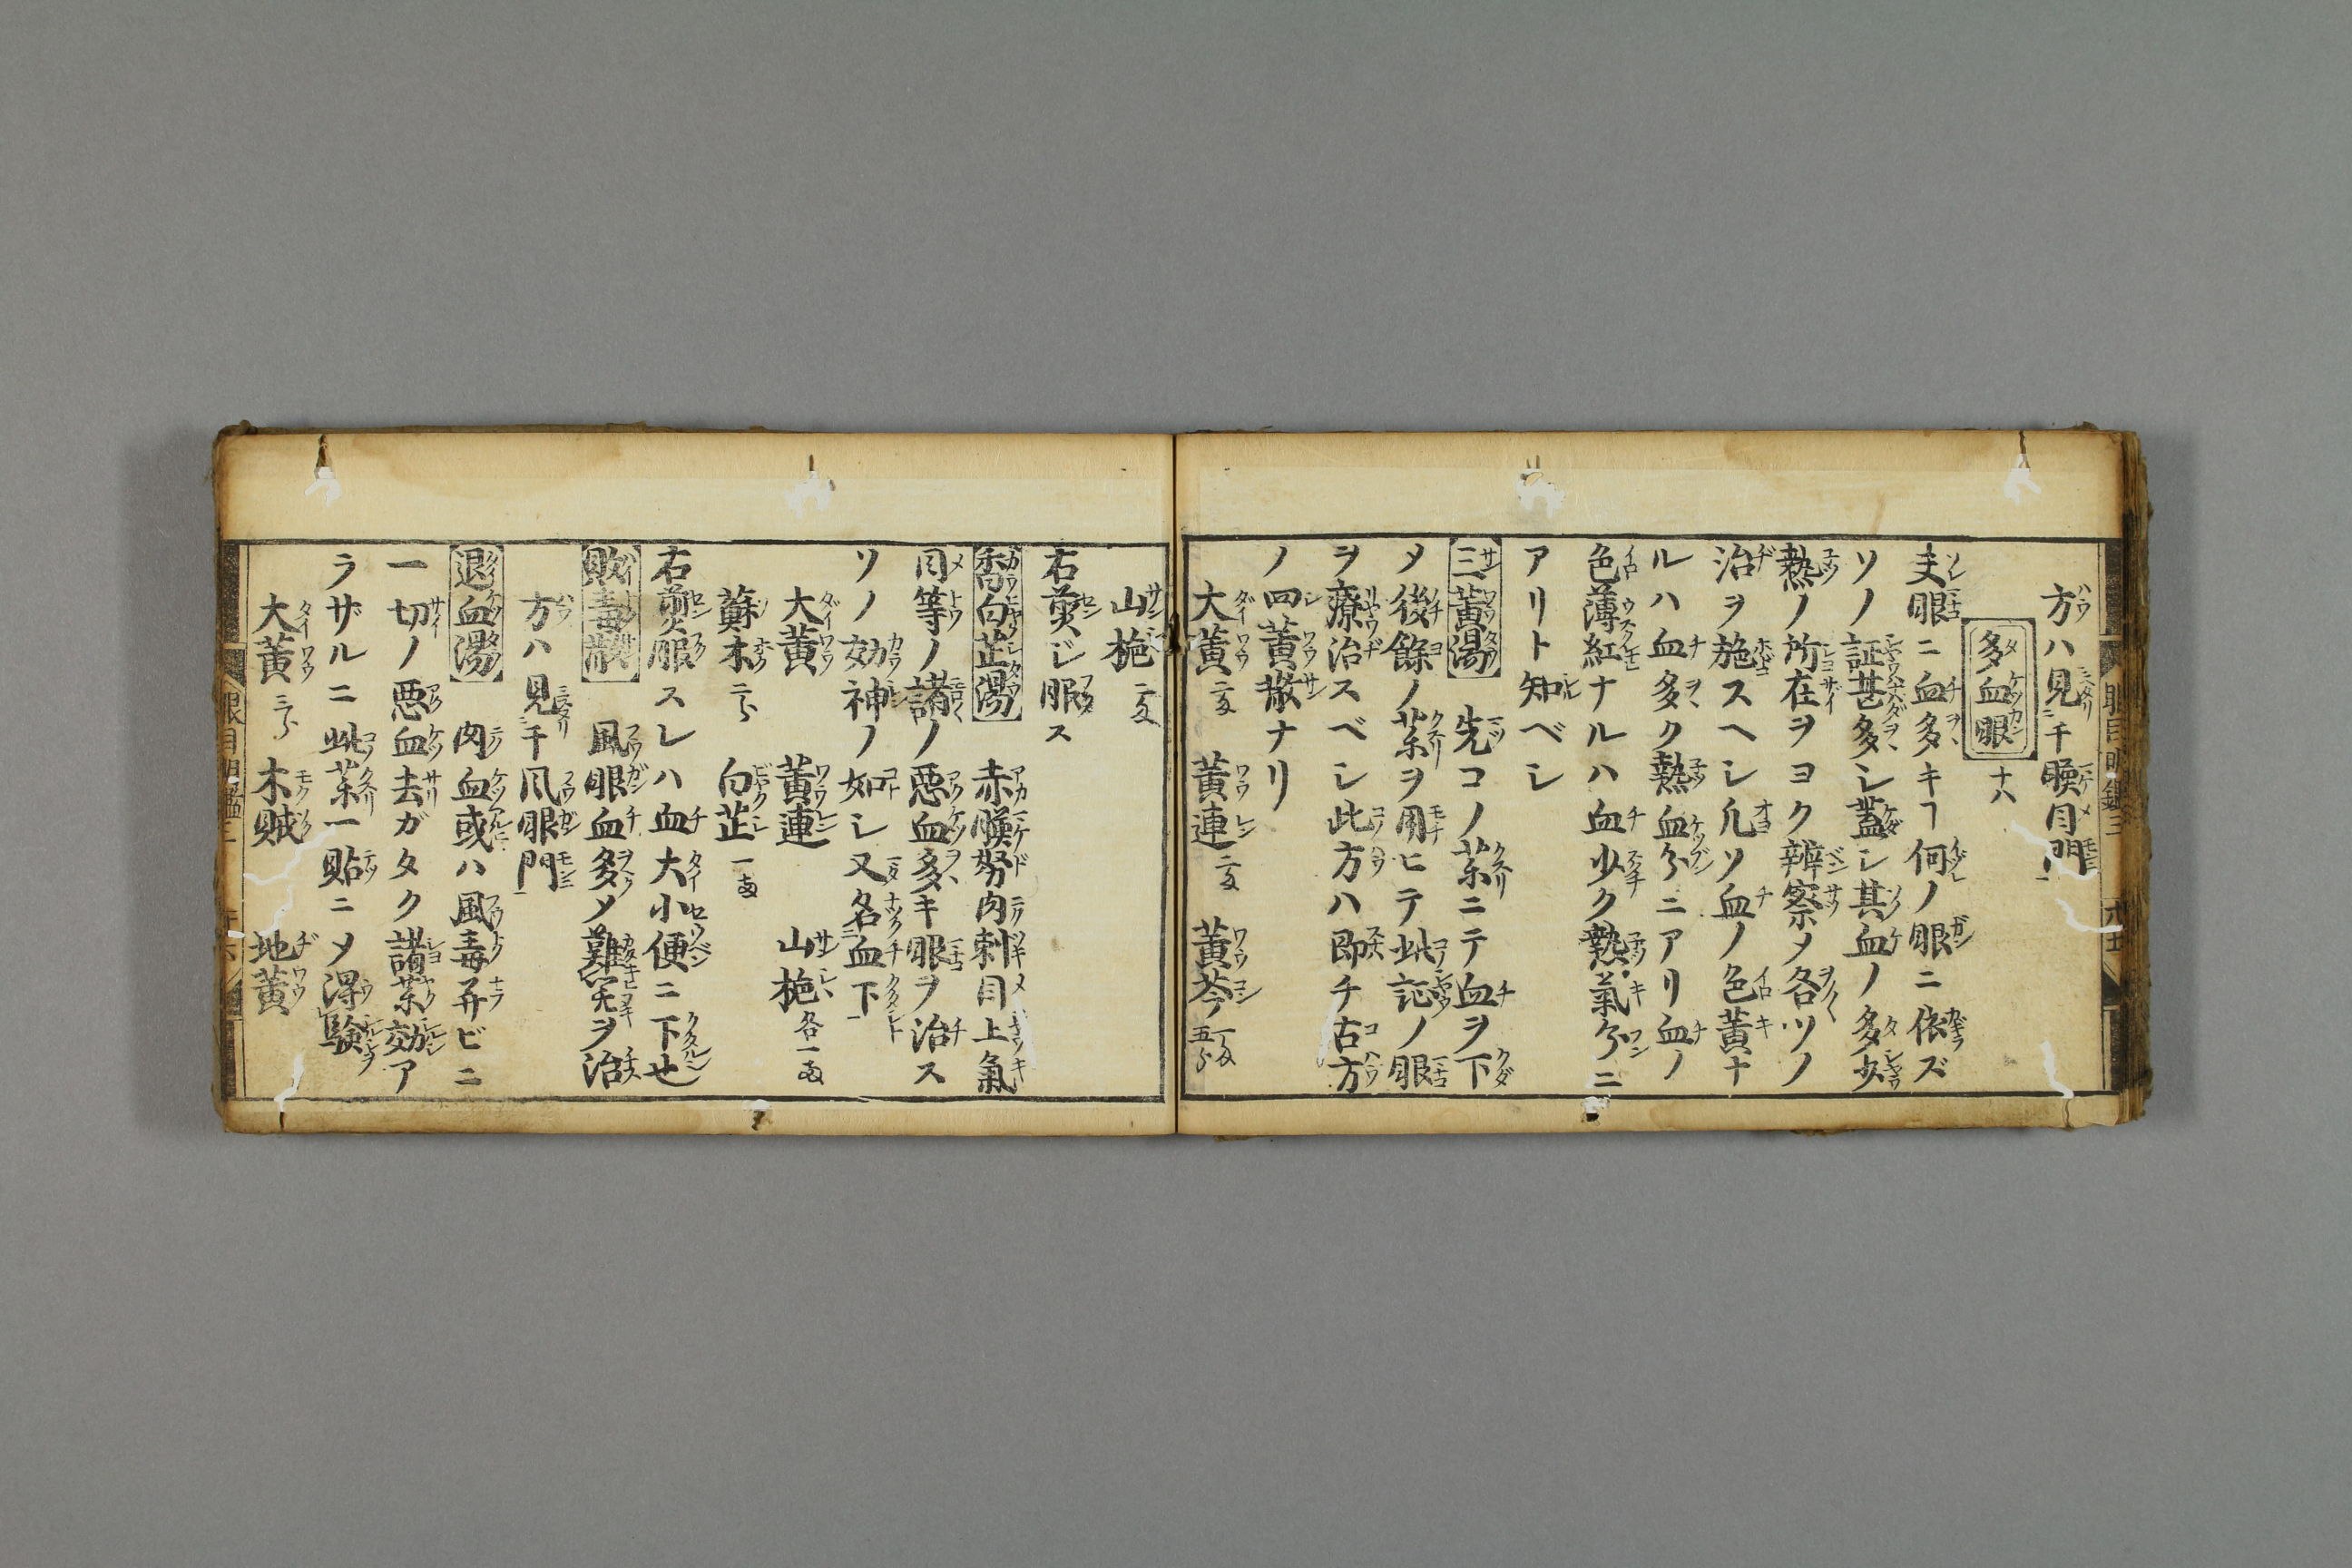 方ハ見于𣋓目門
多血眼 十八
夫眼ニ血多キヿ何ノ眼ニ依ズ
ソノ証甚多シ蓋シ其血ノ多少
熱ノ所在ヲヨク辨察メ各ソノ
治ヲ施スヘシ凡ソ血ノ色黄ナ
ルハ血多ク熱血分ニアリ血ノ
色薄紅ナルハ血少ク熱氣分ニ
アリト知ベシ
三黄湯 先コノ薬ニテ血ヲ下
メ後餘ノ薬ヲ用ヒテ此証ノ眼
ヲ療治スベシ此方ハ即チ古方
ノ四黄散ナリ
大黄 黄連 黄芩
山梔
右煎ジ服ス
喬白芷湯 赤𣋓努肉刺目上氣
目等ノ諸ノ悪血多キ眼ヲ治ス
ソノ効神ノ如シ又名血下
大黄 黄連 山梔 各一両
蘇木 二分 白芷 一両
右煎服スレハ血大小便ニ下也
敗毒散 風眼血多メ難開ヲ治
方ハ見于風眼門
退血湯 肉血或ハ風毒并ビニ
一切ノ悪血去ガタク諸薬効ア
ラザルニ此薬一貼ニメ得験
大黄 三分 木賊 地黄
眼目明鑑三